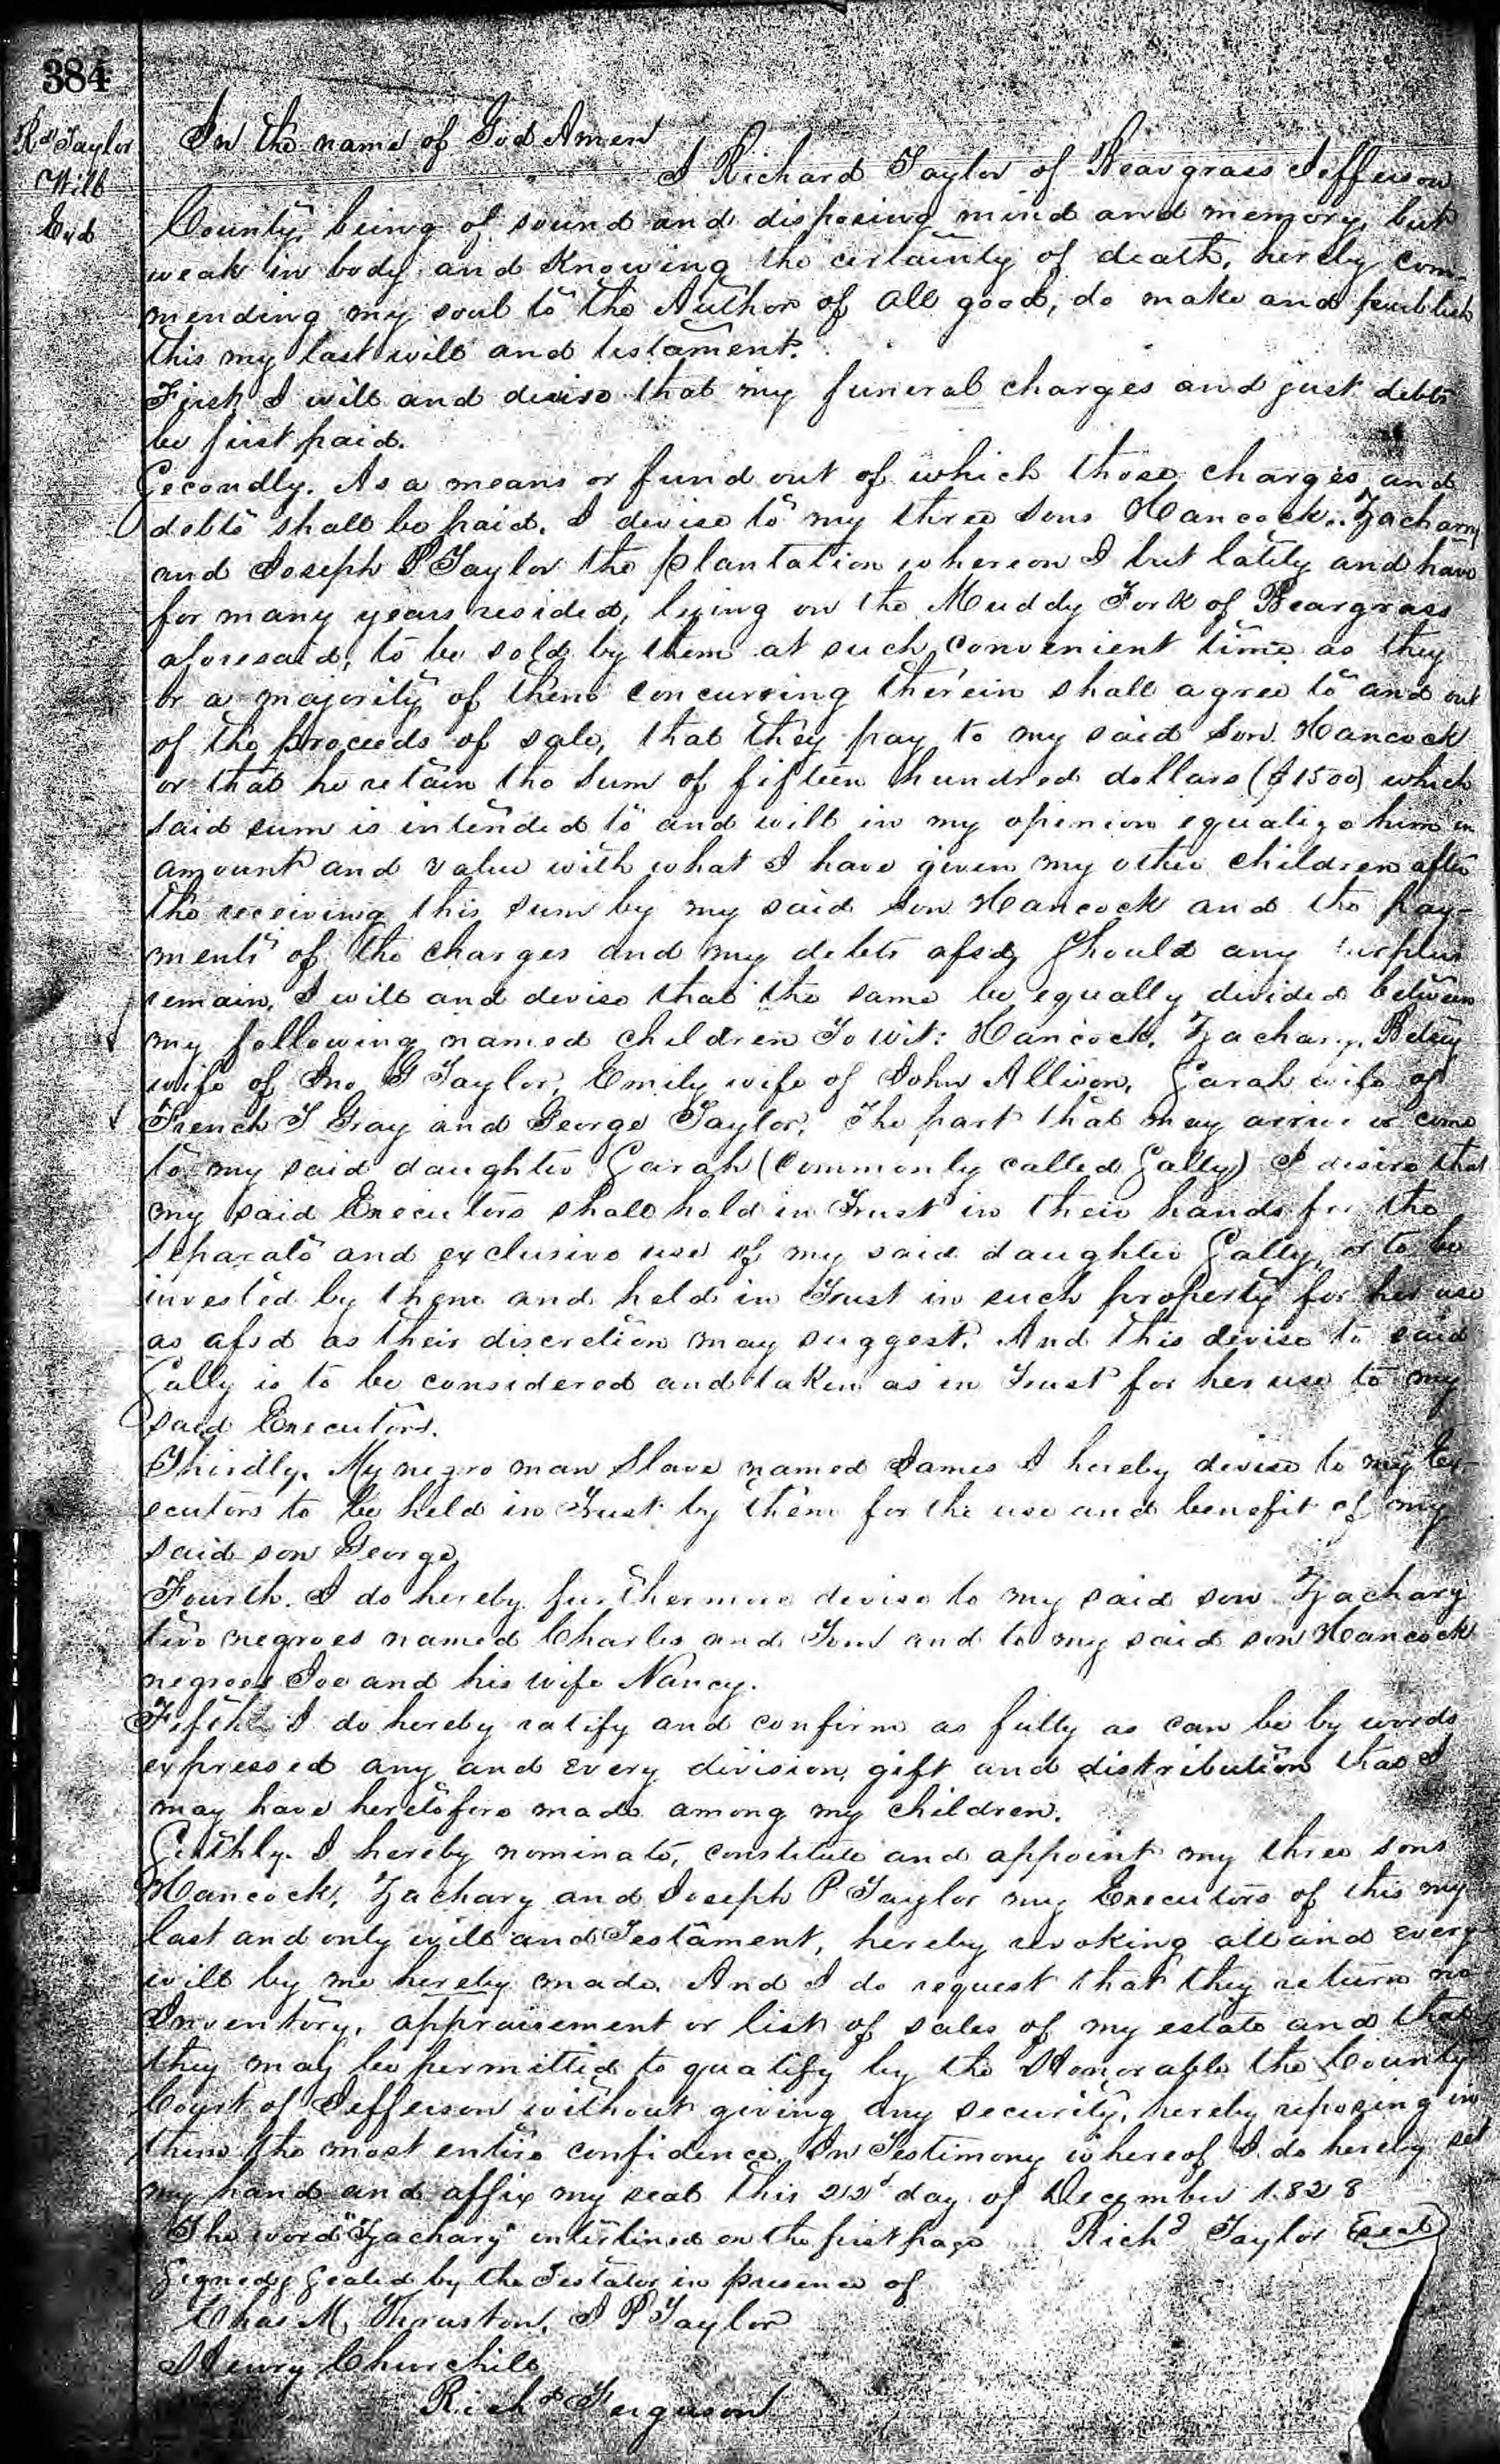 384
Rd Taylor
Will
Exd
In the name of God Amen
I Richard Taylor of Beargrass Jefferson
County, being of sound and disposing mind and memory, but
weak in body, and Knowing the certainty of death, hereby com-
mending my soul to the Author of all good, do make and publish
this my last will and testament.
First I will and devise that my funeral charges and just debts
be first paid.
Secondly. As a means or fund out of which those charges and
debts shall be paid. I devise to my three sons Hancock, Zachary
and Joseph P Taylor the plantation whereon I but lately and have
for many years resided, lying on the Muddy Fork of Beargrass
aforesaid, to be sold by them at such convenient time as they
or a majority of them concurring therein shall agree to and out
of the proceeds of sale, that they pay to my said son Hancock
or that he retain the sum of fifteen hundred dollars ($1500) which
said sum is intended to and will in my opinion equalize him in
amount and value with what I have given my other children after
the receiving this sum by my said son Hancock and the pay-
ments of the charges and my debts afsd, Should any surplus
remain, I will and devise that the same be equally divided between
my following named children To wit: Hancock, Zachary, Betsy
wife of Jno G Taylor, Emily wife of John Allison, Sarah wife of
French S Gray and George Taylor, The part that may arrive or come
to my said daughter Sarah (commonly called Sally) I desire that
my said Executors shall hold in Trust in their hands for the
separate and exclusive use of my said daughter Sally, or to be
invested by them and held in Trust in such property for her use
as afsd as their discretion may suggest. And this devise to said
Sally is to be considered and taken as in Trust for her use to my
said Executors.
Thirdly. My negro man Slave named James I hereby devise to my Ex-
ecutors to be held in Trust by them for the use and benefit of my
said son George
Fourth. I do hereby furthermore devise to my said son Zachary
two negroes named Charles and Tom and to my said son Hancock
negroes Joe and his wife Nancy.
Fifth I do hereby ratify and confirm as fully as can be by words
expressed any and every division, gift and distribution that I
may have heretofore made among my children.
Sixthly. I hereby nominate, constitute and appoint my three sons
Hancock, Zachary and Joseph P Taylor my Executors of this my
last and only will and Testament, hereby revoking all and every
will by me hereby made. And I do request that they return no
Inventory, appraisement or list of sales of my estate and that
they may be permitted to qualify by the Honorable the County
Court of Jefferson without giving any security, hereby reposing in
them the most entire confidence. In Testimony whereof I do hereby set
my hand and affix my seal this 22d day of December 1828
The word "Zachary" interlined on the first page Richd Taylor Seal
Signed, Sealed by the Testator in presence of
Chas M, Thruston, J P Taylor
Henry Churchill
Richd Ferguson